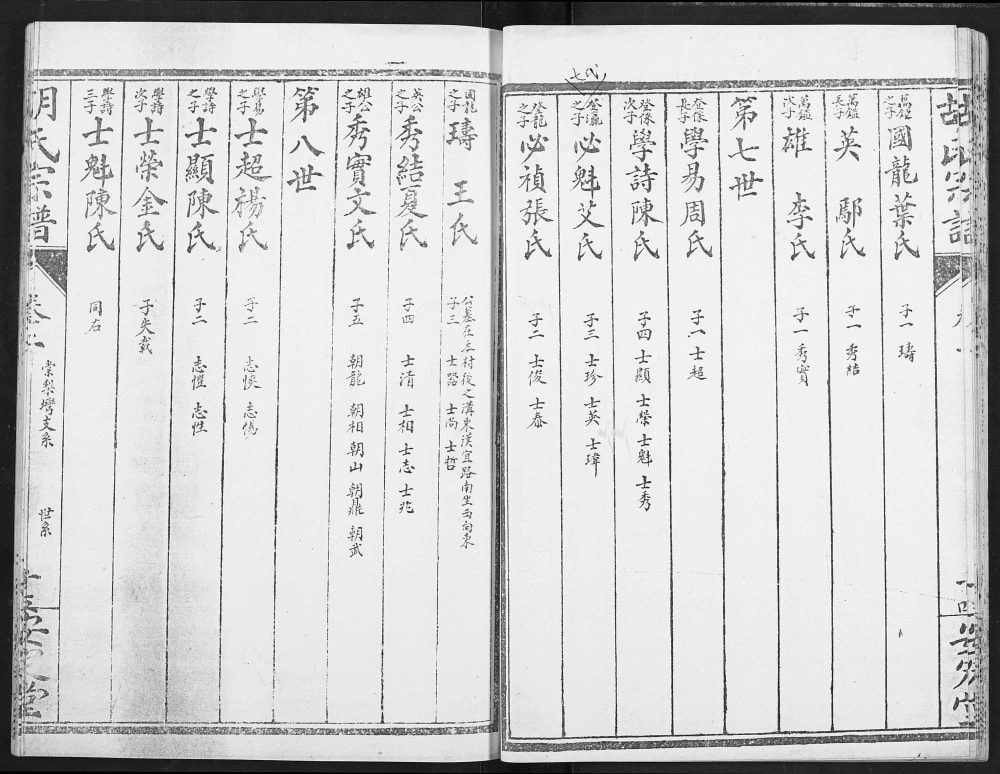 萬鎰之子 國龍葉氏 子一 璹
萬鎰長子 英 鄢氏 子一 秀結
萬鎰次子 雄 李氏 子一 秀實
第七世
登俅長子 學易周氏 子一 士超
登俅次子 學詩陳氏 子四 士顯 士榮 士魁 士秀
七代
之子 必魁艾氏 子三 士珍 士英 士瑋
登龍之子 必禎張氏 子二 士俊 士泰
國龍之子 璹 王氏 子三 士尚 士哲
英公之子 秀結夏氏 子四 士清 士相 士志 士兆
雄公之子 秀實文氏 子五 朝龍 朝相 朝山 朝鼎 朝武
第八世
學易之子 士超楊氏 子二
學詩之子 士顯陳氏 子二 志愷 志性
學詩次子 士榮金氏 子失載
學詩三子 士魁陳氏 同右
胡氏宗譜
棠梨灣支系 世系